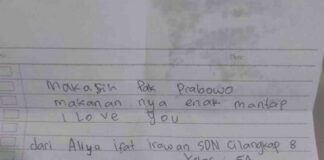 Makasih Pak Prabowo
makanan nya enak mantap
I Love you
dari Aliya ifat irawan SDN Cilangkap 8